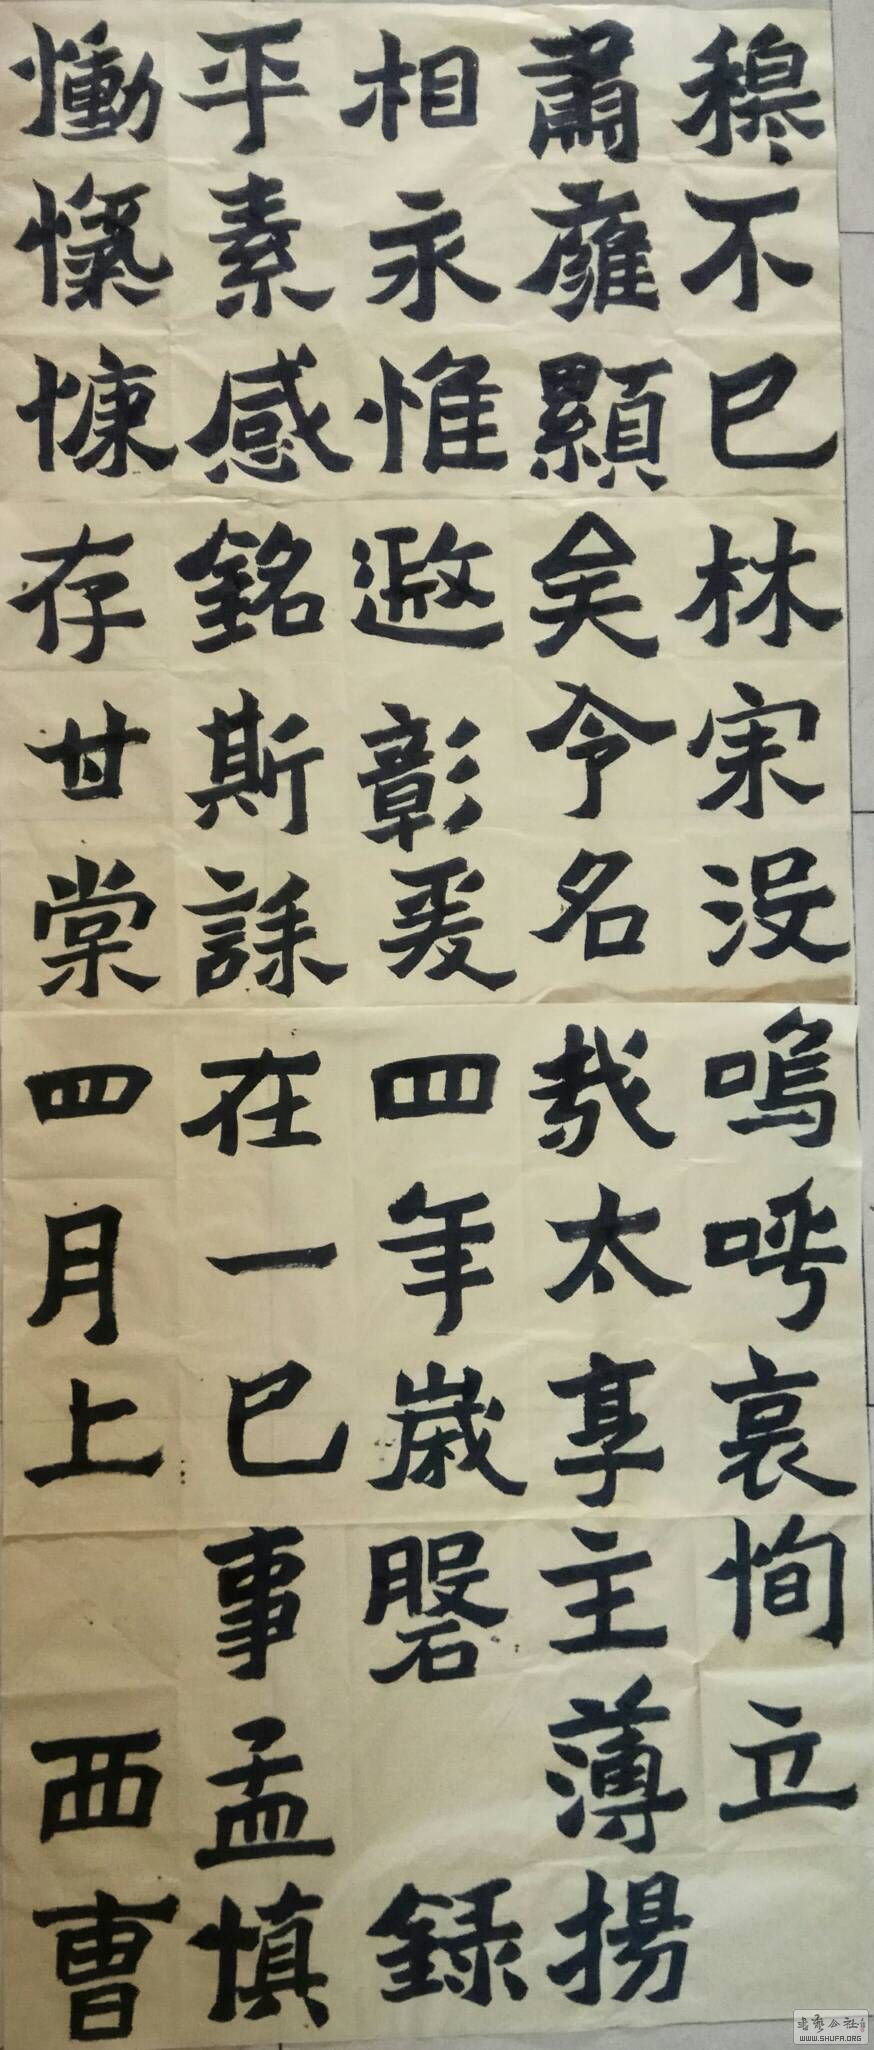 穆不已林宋没嗚呼哀恂立
肅雍顯矣令名哉太享主薄揚
相永惟遐彰爰四年歲磐錄
平素感銘斯誄在一巳事孟慎
慟愾慷存甘棠四月上西曹
WWW.SHUFA.ORG